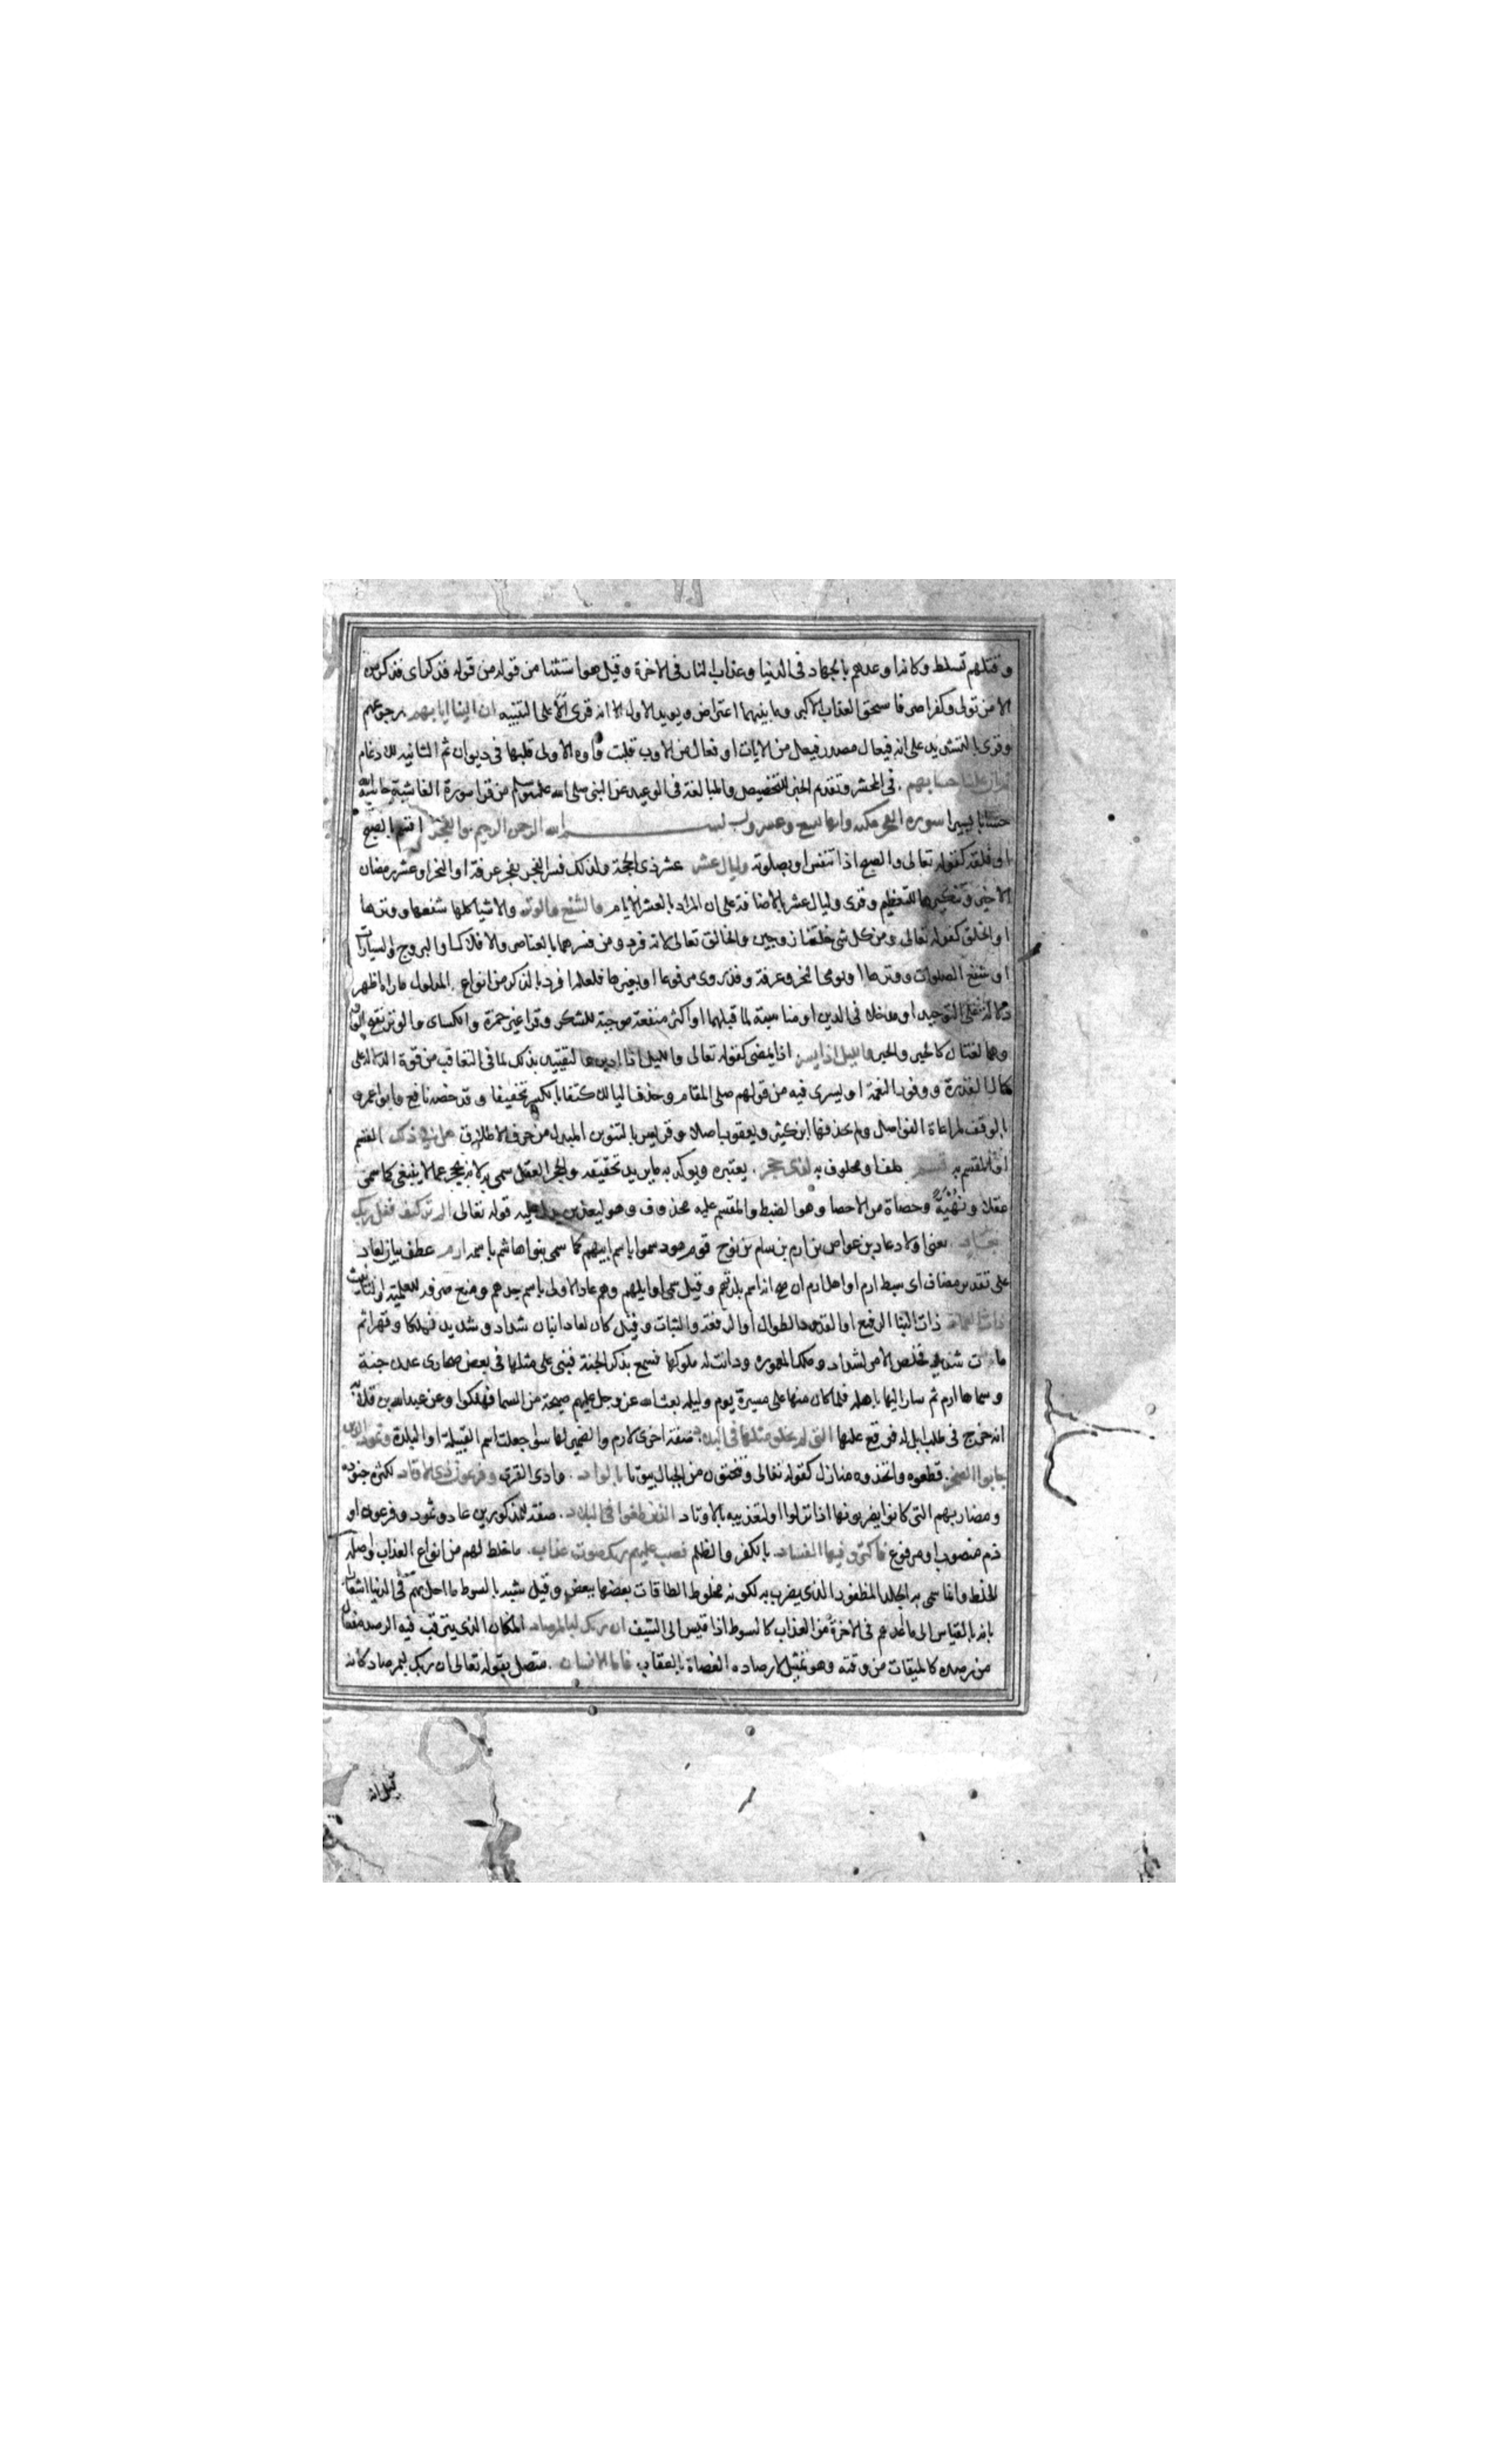 وقتلهم تسلط وكانه اوعدهم بالجهاد في الدنيا وعذاب النار في الاخرة وقيل هو استثنا من قوله من قوله فذكر اى فذكرهن
الا من تولى وكفر اصر فاستحق العذاب الاكبر وما بينهما اعتراض ويويد الاول الا انه قرى الا على التنبيه ان الينا ايابهم رجوعهم
وقرى بالتشديد على انه فيعال مصدر فيعل من الاياب او فعال من الاوب قلبت واوه الاولى قلبها في ديوان ثم الثانيه للادغام
ثم ان علينا حسابهم في المحشر وتقديم الخبر للتخصيص والمبالغة في الوعيد عن النبى صلى الله عليه وسلم من قرا سورة الغاشية حاسبه الله
حسابا يسيرا سورة الفجر مكيه وايها تسع وعشرون بسم الله الرحمن الرحيم والفجر اقسم بالصبح
او فلقه كقوله تعالى والصبح اذا تنفس او بصلوته وليال عشر عشر ذى الحجة ولذلك فسر الفجر بفجر عرفة او النحر او عشر رمضان
الاخير وتنكيرها للتعظيم وقرى وليال عشر بالاضافة على ان المراد بالعشر الايام والشفع والوتر والاشيا كلها شفعها ووترها
او الخلق كقوله تعالى ومن كل شى خلقنا زوجين والخالق تعالى لانه فرد ومن فسرهما بالعناصر والافلاك او البروج والسيارات
او شفع الصلوات ووترها او يومى النحر وعرفة وقد روى مرفوعا او بغيرها فلعله افرد بالذكر من انواع المدلول ما راه اظهر
دلالة على التوحيد او مدخلا في الدين او مناسبة لما قبلهما او اكثر منفعة موجبة للشكر وقرا غير حمزة والكساى والوتر بفتح الواو
وهما لغتان كالحبر والحبر والليل اذا يسر اذا يمضى كقوله تعالى والليل اذا ادبر والتقييد بذلك لما في التعاقب من قوة الدلالة على
كمال القدرة ووفور النعمة او يسرى فيه من قولهم صلى المقام وحذف اليا للاكتفا بالكسر تخفيفا وقد خصه نافع وابو عمرو
بالوقف لمراعاة الفواصل ولم يحذفها ابن كثير ويعقوب اصلا وقرى يسر بالتنوين المبدل من حرف الاطلاق هل في ذلك القسم
او المقسم به قسم حلف او محلوف به لذى حجر يعتبره ويوكد به ما يريد تحقيقه والحجر العقل سمى به لانه يحجر عما لا ينبغى كما سمى
عقلا ونهية وحصاة من الاحصا وهو الضبط والمقسم عليه محذوف وهو ليعذبن يدل عليه قوله تعالى الم تر كيف فعل ربك
بعاد يعنى اولاد عاد بن عواص بن ارم بن سام بن نوح قوم هود سموا باسم ابيهم كما سمى بنوا هاشم باسمه ارم عطف بيان لعاد
على تقدير مضاف اى سبط ارم او اهل ارم ان صح انه اسم بلدتهم وقيل سمى اوايلهم وهم عاد الاولى باسم جدهم ومنع صرفه للعلمية والتانيث
ذات العماد ذات البنا الرفيع او القدود الطوال او الرفعة والثبات وقيل كان لعاد ابنان شداد وشديد فملكا وقهرا ثم
مات شديد فخلص الامر لشداد وملك المعموره ودانت له ملوكها فسمع بذكر الجنة فبنى على مثلها في بعض صحارى عدن جنة
وسماها ارم ثم سار اليها باهله فلما كان منها على مسيرة يوم وليلة بعث الله عز وجل عليهم صيحة من السما فهلكوا وعن عبد الله بن قلابة
انه خرج في طلب ابل له فوقع عليها التى لم يخلق مثلها في البلاد صفة اخرى لارم والضمير لها سوا جعلت اسم القبيلة او البلدة وثمود الذين
جابوا الصخر قطعوه واتخذوه منازل كقوله تعالى وتنحتون من الجبال بيوتا بالواد وادى القرى وفرعون ذى الاوتاد لكثرة جنوده
ومضاربهم التى كانوا يضربونها اذا نزلوا او لتعذيبه بالاوتاد الذين طغوا في البلاد صفة للمذكورين عاد وثمود وفرعون او
ذم منصوب او مرفوع فاكثروا فيها الفساد بالكفر والظلم فصب عليهم ربك سوط عذاب ما خلط لهم من انواع العذاب واصله
الخلط وانما سمى به الجلد المظفور الذى يضرب به لكونه مخلوط الطاقات بعضها ببعض وقيل شبه بالسوط ما احل بهم في الدنيا اشعارا
بانه بالقياس الى ما اعد لهم في الاخرة من العذاب كالسوط اذا قيس الى السيف ان ربك لبالمرصاد المكان الذى يترقب فيه الرصد مفعال
من رصده كالميقات من وقته وهو تمثيل لارصاده العصاة بالعقاب فاما الانسان متصل بقوله تعالى ان ربك لبمرصاد كانه
قيل انه